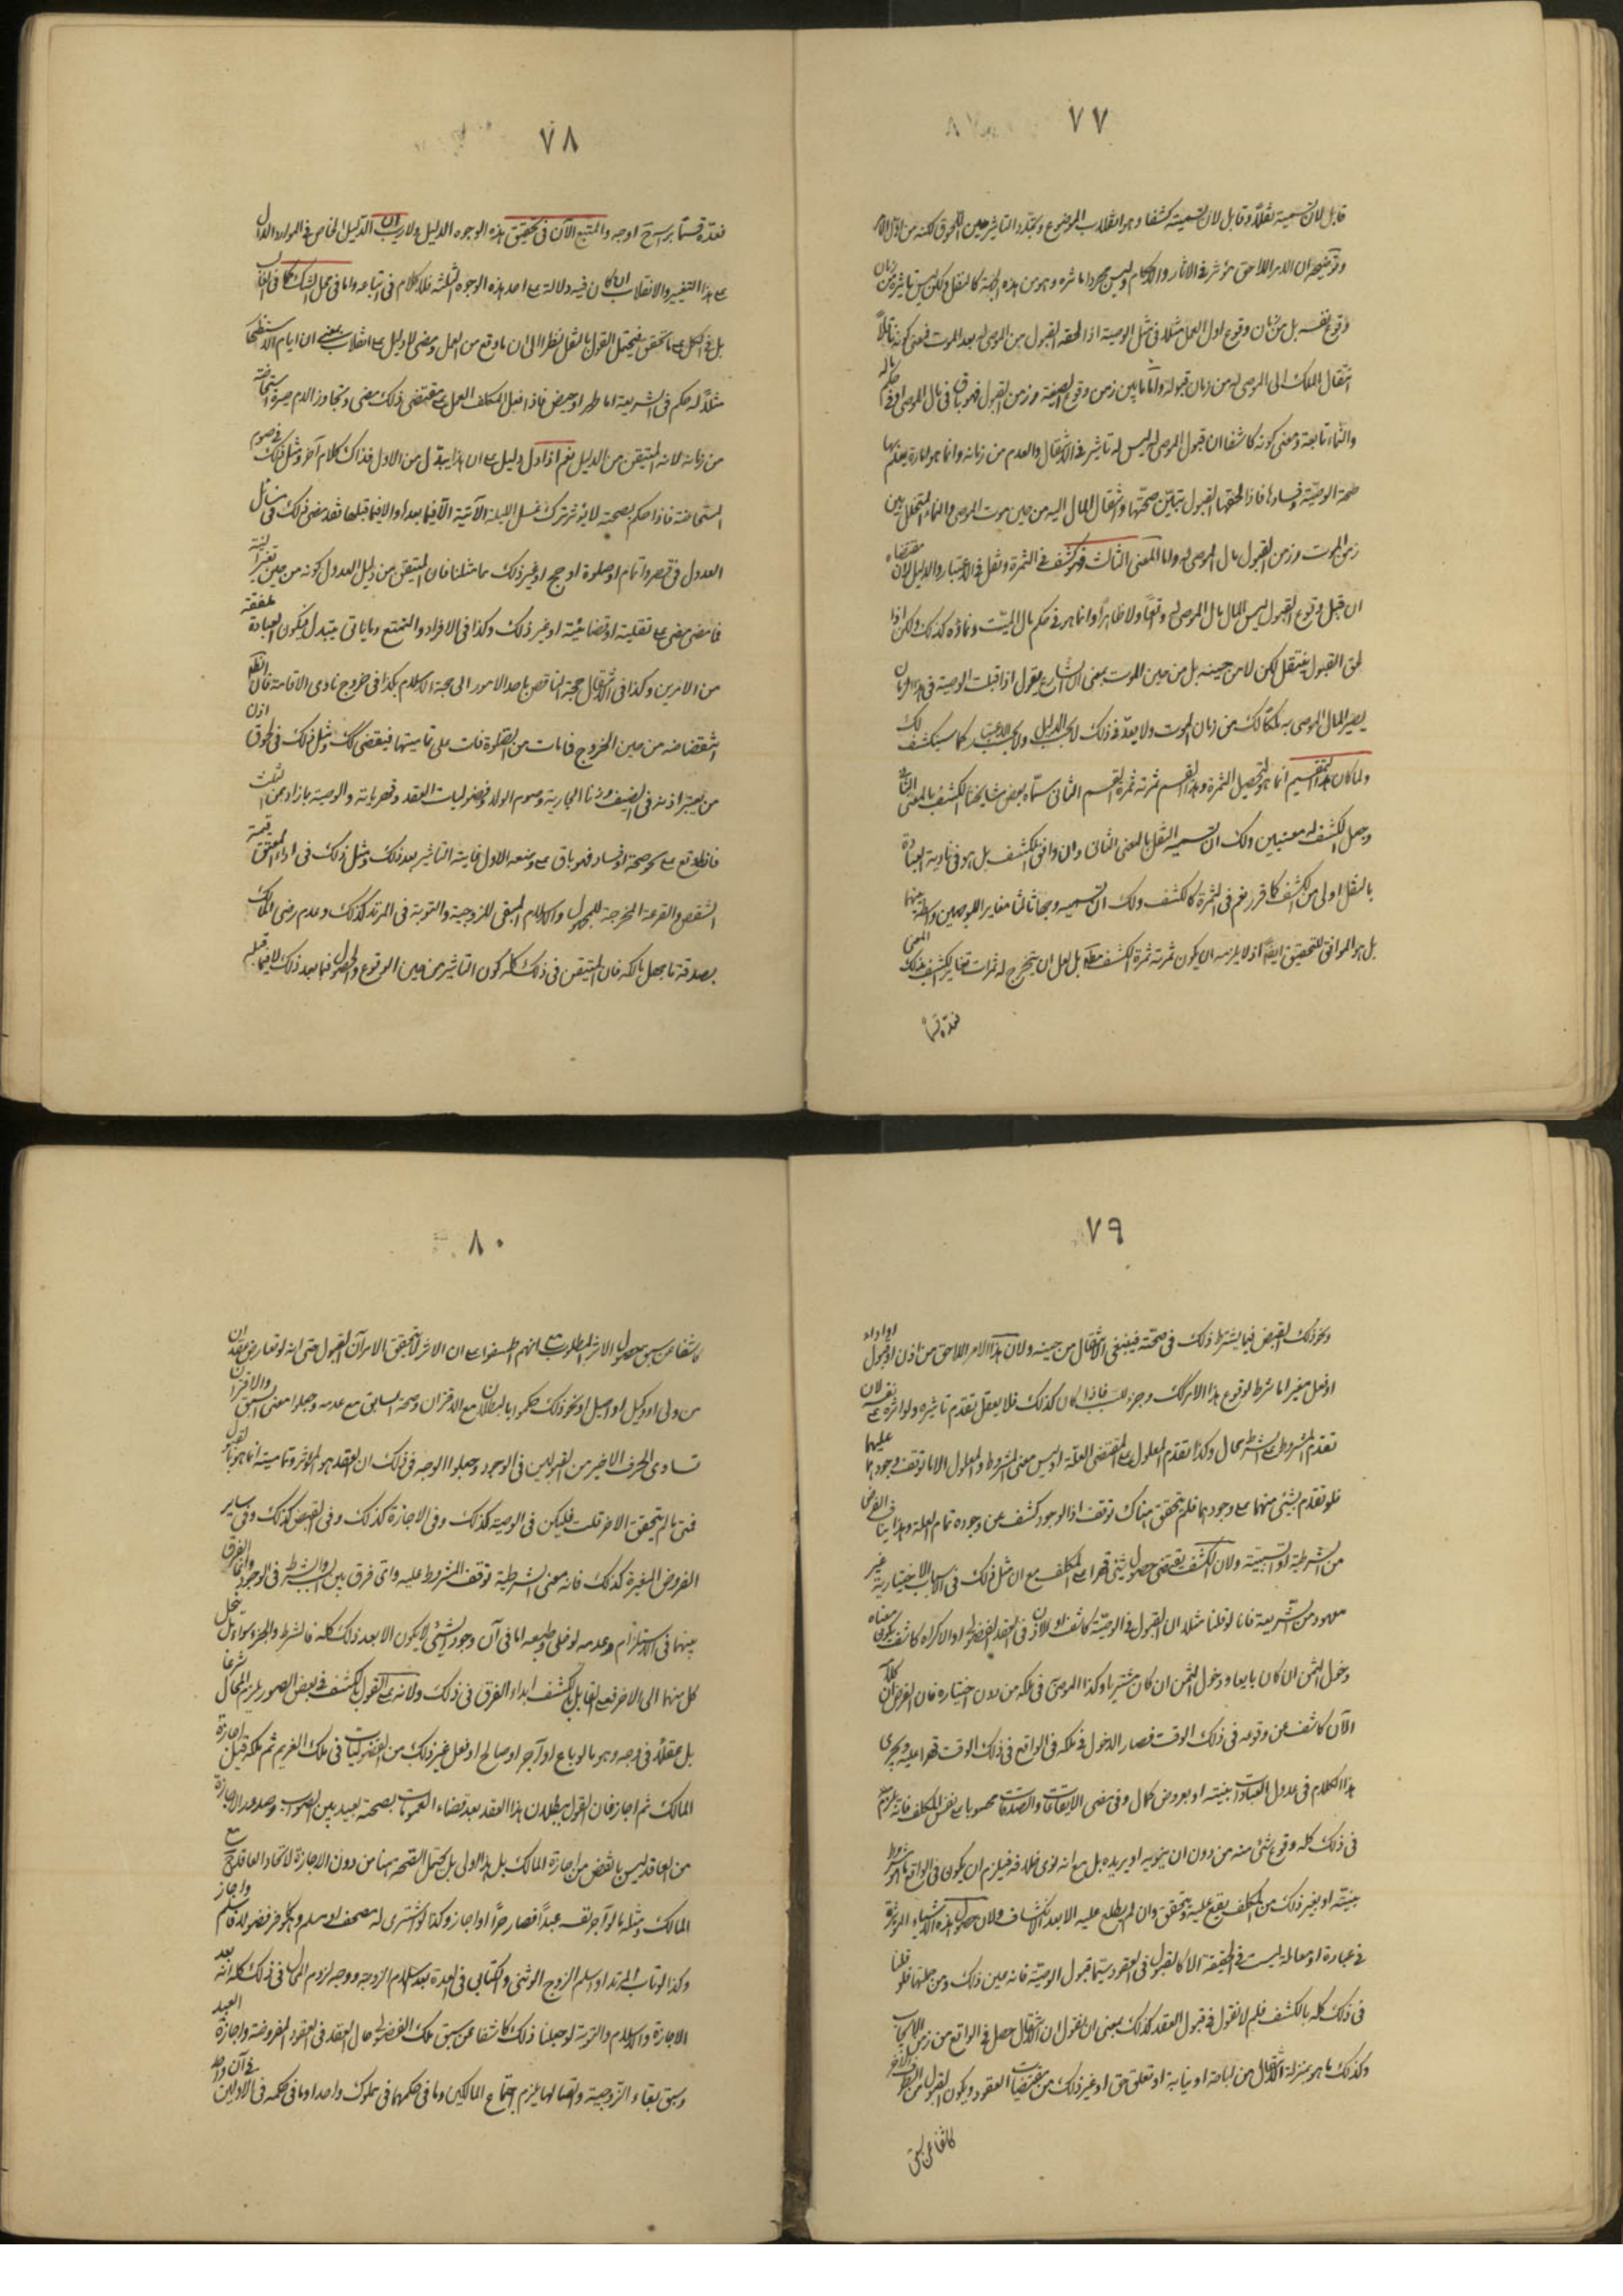 ٧٧
قابل لان نسميه نقلا وقابل لان نسميه كشفا وهو انقلاب الموضوع وتجدد التاثير من حين اللحوق لكنه من اول الامر
وتوضيحه ان الامر اللاحق مؤثر في الاثار والاحكام وليس مجرد امارة وهو من هذه الجهة كالنقل ولكن ليس تاثيره من زمان
وقوع نفسه بل من زمان وقوع اول العمل مثلا في مثل الوصية اذا لحقه القبول من الموصى له بعد الموت فمعنى كونه ناقلا
انتقال الملك الى الموصى له من زمان قبوله واما ما بين زمن وقوع الصيغة وزمن القبول فهو باق في مال الموصى او في حكم ماله
والنماء تابعة ومعنى كونه كاشفا ان قبول الموصى له ليس له تاثير في الانتقال والعدم من زمانه وانما هو امارة يعلم بها
صحة الوصية وفسادها فاذا لحقها القبول يتبين صحتها وانتقال المال اليه من حين موت الموصى والنماء المتخلل بين
زمن الموت وزمن القبول مال الموصى له واما المعنى الثالث فهو كشف في الثمرة ونقل في الاعتبار والدليل لان مقتضاه
ان قبل وقوع القبول ليس المال مال الموصى له واقعا ولا ظاهرا وانما هو في حكم مال الميت ونماؤه كذلك ولكن اذا
لحق القبول ينتقل لكن لا من حينه بل من حين الموت بمعنى ان الشارع يقول اذا قبلت الوصية في هذا الزمان
يصير المال الموصى به ملكا لك من زمان الموت ولا يعد في ذلك لا بحسب الدليل ولا بحسب الاعتبار كما سيكشف لك
ولما كان هذا التقسيم انما هو لتحصيل الثمرة وهذا القسم ثمرته ثمرة القسم الثاني سماه بعض مشايخنا الكشف بالمعنى الثاني
وجعل الكشف له معنيين ولك ان تسميه النقل بالمعنى الثاني وان وافق الكشف بل هو في تادية العبارة
بالنقل اولى من الكشف كما قرر نعم في الثمرة كالكشف ولك ان تسميه وجها ثالثا مغايرا للوجهين واسطة بينهما
بل هو الموافق للتحقيق ايضا اذ لا يلزمه ان يكون ثمرته ثمرة الكشف مطلقا بل لعل ان يتخرج له ثمرات تغاير الكشف بذلك المعنى
فعده قسما
٧٨
فعده قسما براسه اوجه والمتبع الآن في تحقيق هذه الوجوه الدليل ولا ريب ان الدليل الخاص في الموارد الدال
على هذا التغيير والانقلاب ان كان فيه دلالة على احد هذه الوجوه الثلثة فلا كلام في اتباعه واما في محل الشك كما في الغالب
بل في الكل على ما تحقق فيحتمل القول بالنقل نظرا الى ان ما وقع من العمل ومضى لا دليل على انقلابه بمعنى ان ايام الاستظهار
مثلا له حكم في الشريعة اما طهر او حيض فاذا فعل المكلف العمل على مقتضى ذلك مضى وتجاوز الدم صيره استحاضة
من زمانه لانه المتيقن من الدليل نعم اذا دل دليل على ان هذا يبدل من الاول فذاك كلام آخر ومثل ذلك في صوم
المستحاضة فاذا حكم بصحته لا يؤثر ترك غسل الليلة الآتية الا فيما بعد او لا فيما قبلها فقد مضى ذلك في مسائل
العدول في قصر واتمام او صلوة او حج او غير ذلك مما مثلنا فان المتيقن من دليل العدول كونه من حين تغير النية
فما مضى مضى على نفليته او قضائيته او غير ذلك وكذا في الافراد والتمتع وما ياتي يتبدل فيكون العبادة ملفقة
من الامرين وكذا في الانتقال حجة الناقص باحد الامور الى حجة الاسلام وكذا في خروج ناوي الاقامة فان القطع
انتقضا منه من حين الخروج فما فات من الصلوة فات على تماميتها فيقضى كك ومثل ذلك في لحوق اذن
من يعتبر اذنه في الضيف وزنا الجارية وصوم الولد وفضوليات العقد وقهرياته والوصية بما زاد عن الثلث
فانما وقع على نحو صحة او فساد فهو باق على وضعه الاول فايته التاثير بعد ذلك ومثل ذلك في اداء المعتق قيمة
الشقص والقرعة المخرجة للمجهول والاسلام المبقي للزوجية والتوبة في المرتد كذلك وعدم رضى المالك
بصدقة ما جهل مالكه فان المتيقن في ذلك كله كون التاثير من حين الوقوع والحصول فيما بعد ذلك لا فيما قبله
٧٩
ونحو ذلك القبض فيما يشترط ذلك في صحته فينبغي الانتقال من حينه ولان هذا الامر اللاحق من اذن او قبول او اداء
او فعل مغير اما شرط لوقوع هذا الامر كك وجزء السبب فاذا كان كذلك فلا يعقل تقدم تاثيره ولو اثره على نفسه لان
تقدم المشروط على الشرط محال وكذا تقدم المعلول على المقتضى العلة اذ ليس معنى المشروط والمعلول الا ما توقف وجودهما عليهما
فلو تقدم شيء منهما على وجودهما فلم يتحقق هناك توقف اذ الوجود كشف عن وجوده تمام العلة وهذا ينافي الفرض
من الشرطية او السببية ولان الكشف يقتضي حصول شيء قهرا على المكلف مع ان مثل ذلك في الاسباب الاختيارية غير
معهود من الشريعة فانا لو قلنا مثلا ان القبول في الوصية كاشف او الاذن في العقد الفضولي او الاكراه كاشف يكون معناه
دخول الثمن ان كان بايعا ودخول المثمن ان كان مشتريا وكذا الموصى في ملكه من دون اختياره فان الفرض ان كلامه
الآن كاشف عن وقوعه في ذلك الوقت فصار الدخول في ملكه في الواقع في ذلك الوقت قهرا عليه ويجري
هذا الكلام في عدول العبادات بنيته او بعروض كمال وفي مضى الايقاعات والصدقات محسوبا على نفس المكلف فانه يلزم
في ذلك كله وقوع شيء منه من دون ان ينويه او يريده بل مع انه نوى خلافه فيلزم ان يكون في الواقع ما هو مشروط
بنيته او بغير ذلك من المكلف يقع عليه ويتحقق وان لم يطلع عليه الا بعد الانكشاف ولان حصول هذه الاشياء المؤثرة
في عبادة او معاملة ليست في الحقيقة الا كالقبول في العقود سيما قبول الوصية فانه عين ذلك ومن جملتها فلو قلنا
في ذلك كله بالكشف فلم لا نقول في قبول العقد كذلك بمعنى ان نقول ان الانتقال حصل في الواقع من زمن الايجاب
وكذلك ما هو بمنزلة الانتقال من اباحة او نيابة او تعلق حق او غير ذلك من مقتضيات العقود ويكون القبول من الطرف الآخر
كاشفا عن سبق
٨٠
كاشفا عن سبق حصول الاثر المطلوب مع انهم اطبقوا على ان الاثر لا يتحقق الا مرآن القبول حتى انه لو تعارض عقدان
من ولي او وكيل او اصيل او نحو ذلك حكموا بالبطلان مع الاقتران وصحة السابق مع عدمه وجعلوا معنى السبق والاقتران
تساوى الحرف الاخير من القبولين في الوجود وجعلوا الوجه في ذلك ان العقد هو المؤثر وتماميته انما هو بالقبول
فمتى ما لم يتحقق الاخر قلت فليكن في الوصية كذلك وفي الاجازة كذلك وفي القبض كذلك وفي سائر
الفروض المغيرة كذلك فانه معنى الشرطية توقف المشروط عليه واي فرق بين السبب والشرط في الوجود وانما الفرق
بينهما في الاستلزام وعدمه لو خلي وطبعه اما في آن وجود الشيء لا يكون الا بعد ذلك كله فالشرط والجزء سواء بل يحل
كل منهما الى الاخر فعلى القايل بالكشف ابداء الفرق في ذلك ولانه على القول بالكشف في بعض الصور يلزم المحال شرعا
بل عقلا في وجه وهو ما لو باع او آجر او صالح او فعل غير ذلك من الفضوليات في ملك الغريم ثم ملكه قبل اجازة
المالك ثم اجاز فان القول ببطلان هذا العقد بعد قضاء العمومات بصحته بعيد بين الصواب وصدور الاجازة
من العاقد ليس بانقص من اجازة المالك بل هذا اولى بل يحتمل الصحة هنا من دون الاجازة لاتحاد العاقد مع
المالك ومثله ما لو آجر نفسه عبدا فصار حرا واجاز وكذا لو اشترى له مصحف او مسلم وهو كافر فضولا فاسلم واجاز
وكذا لو تاب المرتد او اسلم الزوج الوثني والكتابي في العدة بعد اسلام الزوجة ووجه لزوم المحال في ذلك كله انه بعد
الاجازة والاسلام والتوبة لو جعلنا ذلك كاشفا عن سبق ملك الفضولي حال العقد في العقود المفروضة واجازة العبد
وسبق بقاء الزوجية واتصالها يلزم اجتماع المالكين وما في حكمهما في مملوك واحد او ما في حكمه في الاولين في آن واحد